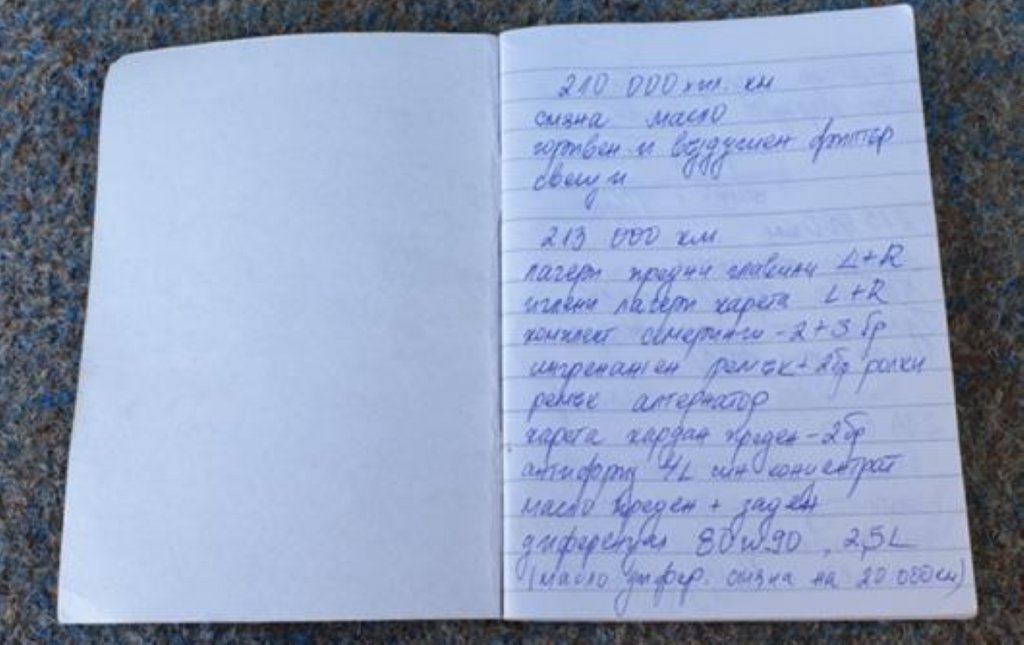 210 000 хил. км
смяна масло
горивен и въздушен филтер
свещи
213 000 км
лагери предни главини L+R
иглени лагери карета L+R
комплект семеринги - 2+3 бр
ангренажен ремък + 2бр ролки
ремък алтернатор
карета кардан преден - 2бр
антифриз 4L син концентрат
масло преден + заден
диференциал 80w90, 2,5L
(масло дифер. смяна на 20 000км)